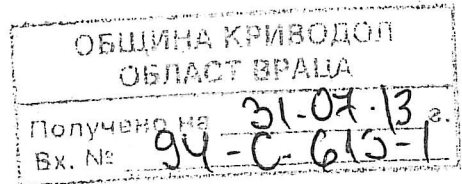 ОБЩИНА КРИВОДОЛ
ОБЛАСТ ВРАЦА
Получено на 31.07.13 г.
Вх. № 94-С-615-1